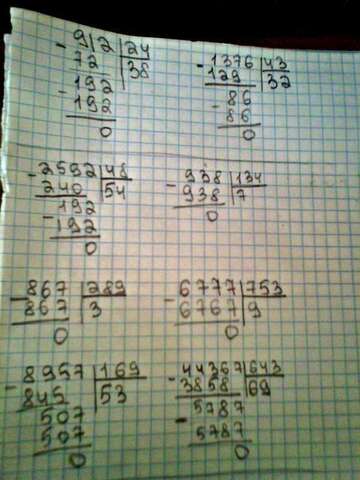 -912|24
72|38
192
-192
0
-1376|43
129|32
86
-86
0
-2592|48
240|54
192
-192
0
-938|134
938|7
0
-867|289
867|3
0
-6777|753
6767|9
0
-8957|169
845|53
507
507
0
-44367|643
3858|69
5787
-5787
0